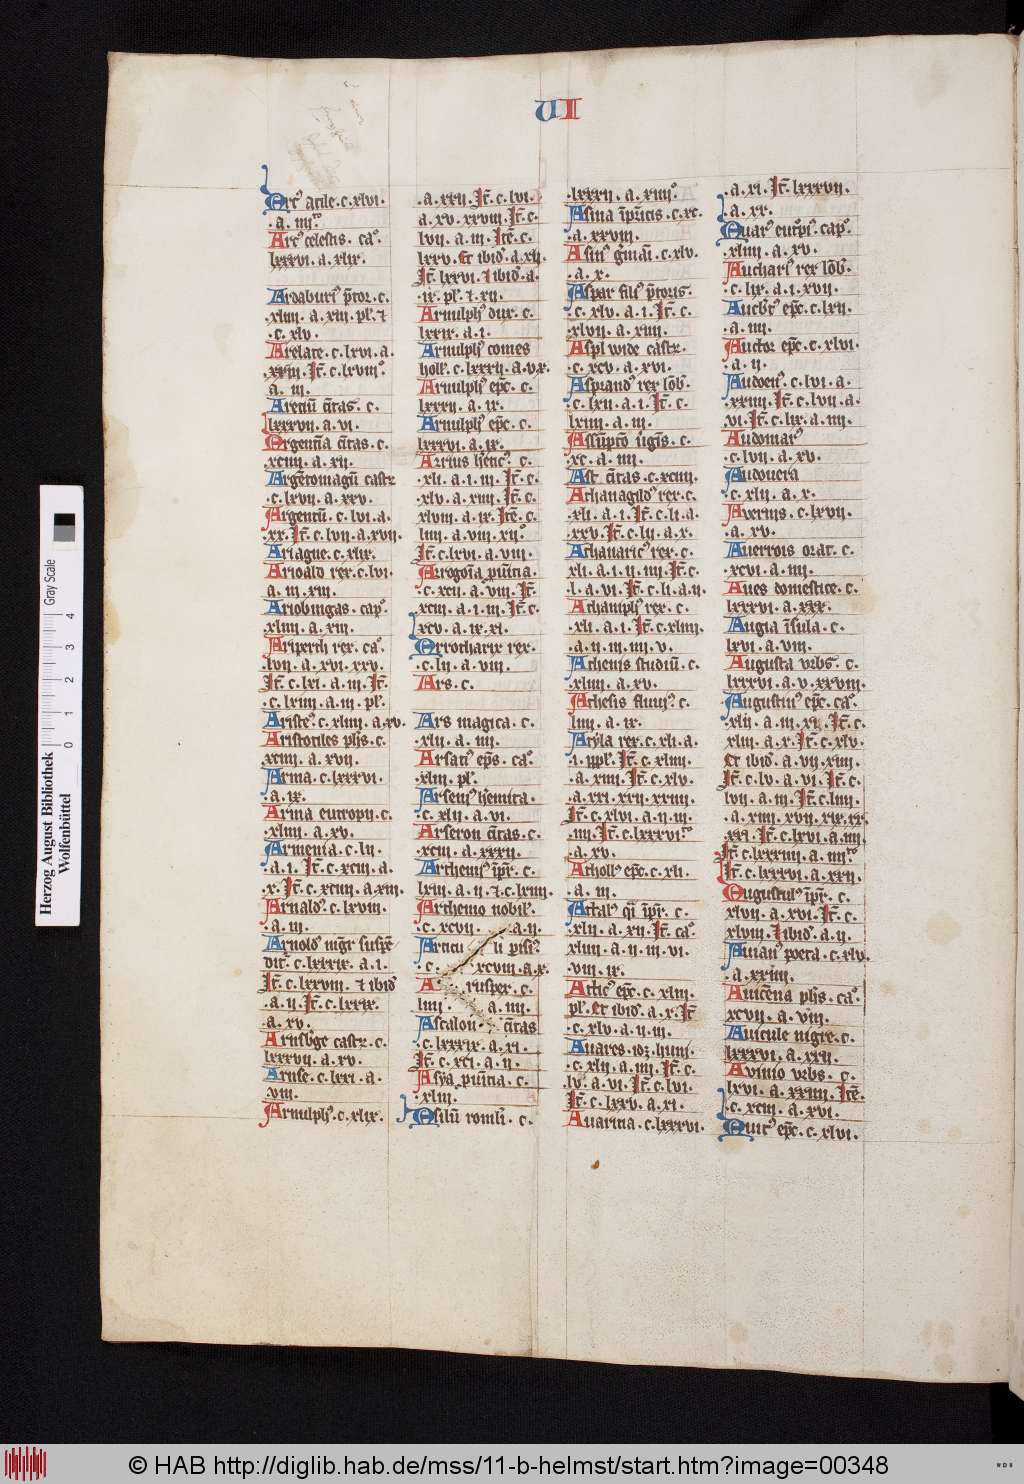 VI
Arc᷒ acile . c . xlvi .
. a . iiij.
Arc᷒ celestis . ca᷒ .
lxxxvi . a . xlix .
Ardaburi᷒ p̄tor . c .
. xliiii . a . xiii . pl᷒ . ⁊
. c . xlv .
Arelate . c . lxvi . a .
. xxiii . It̄ . c . lxviii᷒ .
a . iii .
Areciū c̄itas . c .
lxxxvii . a . vi .
Argencia c̄itas . c .
. xciiii . a . xii .
Argētomagū castr
. c . lxvii . a . xxv .
Argenteū . c . lvi . a .
. xx . It̄ . c . lvii . a . xvii .
Ariagne . c . xlix .
Arioald rex . c . lvi .
a . iii . xiii .
Ariobingas . cap᷒ .
xliiii . a . xiii .
Ariperth rex . ca᷒ .
. lvii . a . xvi . xxv .
It̄ . c . lxi . a . iii . It̄ .
. c . lxiiii . a . iii . pl᷒ .
Ariste᷒ . c . xliiii . a . xv .
Aristotiles ph̄s . c .
. xciiii . a . xvii .
Arma . c . lxxxvi .
. a . ix .
Arma eutropii . c .
. xliiii . a . xv .
Armenia . c . lii .
. a . i . It̄ . c . xciii . a .
. x . It̄ . c . xciiii . a . xiii .
Arnald᷒ . c . lxviii .
. a . iii .
Arnold᷒ mḡr suspē
dit᷒ . c . lxxxix . a . i .
It̄ . c . lxxviii . ⁊ ibid᷒
. a . ii . It̄ . c . lxxix .
. a . xv .
Arnsb̄ge castr . c .
lxxxvii . a . xv .
Arnse . c . lxxi . a .
. viii .
Arnulph᷒ . c . xlix .
. a . xxii . It̄ . c . lvi .
a . xv . xxviii . It̄ . c .
lvii . a . iii . Itē . c .
lxxv . Et ibid᷒ . a . xii .
It̄ . lxxvi . ⁊ ibid᷒ . a .
. ix . pl᷒ . ⁊ . xii .
Arnulph᷒ dux . c .
lxxix . a . i .
Arnulph᷒ comes
holl᷒ . c . lxxxii . a . v . x .
Arnulph᷒ ep̄c . c .
lxxxii . a . ix .
Arnulph᷒ ep̄c . c .
lxxxvi . a . ix .
Arrius h̄etic᷒ . c .
. xli . a . i . iii . It̄ . c .
. xlv . a . xiiii . It̄ . c .
xlviii . a . ix . Itē . c .
liiii . a . viii . xii᷒ .
It̄ . c . lxvi . a . viii .
Arrogōia p̄uicia .
. c . xcii . a . viii . It̄ .
xciii . a . i . iii . It̄ . c .
. xcv . a . ix . xi .
Arrotharix rex .
. c . lii . a . viii .
Ars . c .
Ars magica . c .
xlii . a . iiii .
Arsaci᷒ ep̄s . ca᷒ .
. xliii . pl᷒ .
Arseni᷒ h̄emita .
. c . xlii . a . vi .
Arseron c̄itas . c .
. xciii . a . xxxii .
Arthemi᷒ īpr̄ . c .
lxiii . a . ii . ⁊ . c . lxiiii .
Arthenio nobil᷒ .
. c . xcvii . a . ii .
Articu li prisi᷒
. c . xcviii . a . x .
A ruspex . c .
liiii . a . iiii .
Ascalon c̄itas
. c . lxxxix . a . xi .
It̄ . c . xci . a . ii .
Asya p̄uicia . c .
. xliii .
Asilū romlī . c .
. lxxxii . a . xiiii᷒ .
Asina īp̄ncis . c . xc .
. a . xxviii .
Asin᷒ ḡmāi . c . xlv .
. a . x .
Aspar fili᷒ p̄toris .
. c . xlv . a . i . It̄ . c .
. xlvii . a . xiiii .
Aspl wide castr .
. c . xcv . a . xvi .
Asprand᷒ rex lōb᷒ .
. c . lxii . a . i . It̄ . c .
lxiiii . a . iii .
Assūptō ūgīs . c .
. xc . a . iiii .
Ast c̄itas . c . xciiii .
Athanagild᷒ rex . c .
. xli . a . i . It̄ . c . li . a .
. xxv . It̄ . c . lii . a . x .
Athanaric᷒ rex . c .
xli . a . i . ii . iiii . It̄ . c .
. l . a . vi . It̄ . c . li . a . ii .
Athaniph᷒ rex . c .
. xli . a . i . It̄ . c . xliiii .
. a . ii . iii . iiii . v .
Athenis studiū . c .
. xliiii . a . xv .
Athesis fluui᷒ . c .
liiii . a . ix .
Atyla rex . c . xli . a .
. i . ppl᷒ . It̄ . c . xliiii .
. a . xiiii . It̄ . c . xlv .
. a . xxi . xxii . xxiiii .
It̄ . c . xlvi . a . ii . iii .
. iiii . It̄ . c . lxxxvi
. a . xv .
Atholl᷒ ep̄c . c . xli .
. a . iii .
Attal᷒ q̄i īpr̄ . c .
. xlii . a . xii . It̄ . ca᷒ .
xliiii . a . ii . iii . vi .
. viii . ix .
Attic᷒ ep̄c . c . xliii .
pl᷒ . Et ibid᷒ . a . x . It̄
. c . xlv . a . ii . iii .
Auares . idꝫ . huni .
. c . xlii . a . iiii . It̄ . c .
lv . a . vi . It̄ . c . lvi .
It̄ . c . lxxv . a . xi .
Auarina . c . lxxxvi .
. a . xi . It̄ . lxxxvii .
. a . xx .
Auar᷒ eutpi᷒ . cap᷒ .
. xliiii . a . xv .
Auchari᷒ rex lōb᷒ .
. c . lix . a . i . xvii .
Auctbt᷒ ep̄c . c . lxii .
. a . iiii .
Auctor ep̄c . c . xlvi .
. a . ii .
Audoen᷒ . c . lvi . a .
. xxiiii . It̄ . c . lvii . a .
. vi . It̄ . c . lix . a . iiii .
Audomar᷒
. c . lvii . a . xv .
Audouera
. c . xlii . a . x .
Avernis . c . lxvii .
. a . xv .
Auerrois orat . c .
. xcvi . a . iiii .
Aues domestice . c .
lxxxvi . a . xxx .
Augia īsula . c .
lxvi . a . viii .
Augusta vrbs . c .
lxxxvi . a . v . xxviii .
Augustin᷒ ep̄c . ca᷒ .
. xlii . a . iii . xi . It̄ . c .
xliii . a . x . It̄ . c . xlv .
Et ibid᷒ . a . vii . xiiii .
It̄ . c . lv . a . vi . It̄ . c .
lvii . a . iii . It̄ . c . liiii .
. a . xiiii . xvii . xix . xx .
. xxi . It̄ . c . lxvi . a . iiii .
It̄ . c . lxxxiiii . a . iiii
It̄ . c . lxxxvi . a . xxii .
Augustul᷒ īpr̄ . c .
xlvii . a . xvi . It̄ . c .
xlviii . ⁊ ibid᷒ . a . ii .
Auian᷒ poeta . c . xlv .
. a . xxiiii .
Auicēna ph̄s . ca᷒ .
xcvii . a . viii .
Auicule nigre . c .
lxxxvi . a . xxii .
Avinio vrbs . c .
lxvi . a . xxiiii . Itē .
. c . xciii . a . xvi .
Auit᷒ ep̄c . c . xlvi .
Herzog August Bibliothek
Wolfenbüttel
0 1 2 3 4
Gray Scale
© HAB http://diglib.hab.de/mss/11-b-helmst/start.htm?image=00348